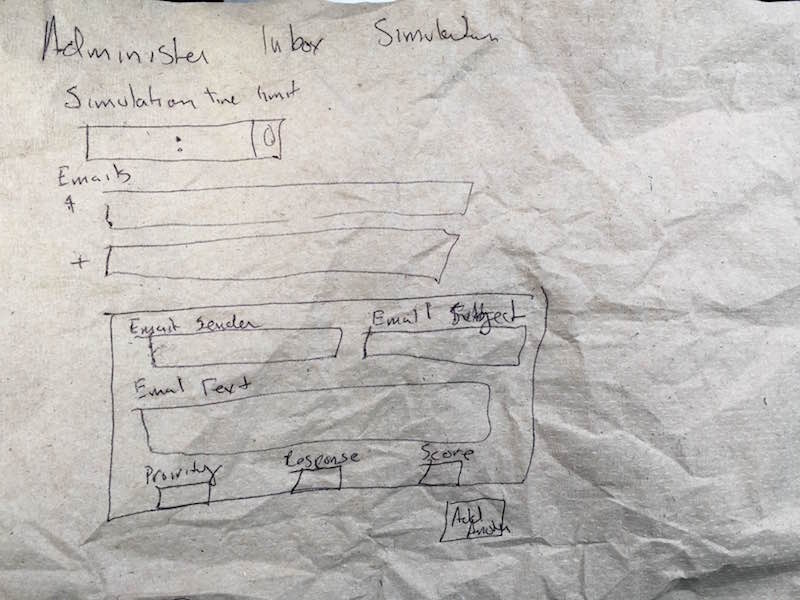 Administer Inbox Simulation
Simulation time limit
:
0
Emails
+
Email Sender
Email Subject
Email Text
Priority
Response
Score
Add
Another